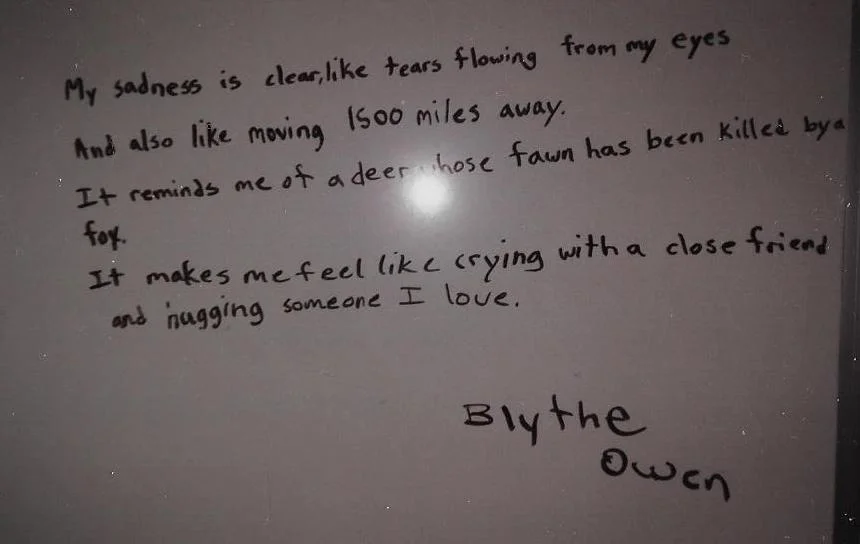 My sadness is clear, like tears flowing from my eyes
And also like moving 1500 miles away.
It reminds me of a deer whose fawn has been killed by a
fox.
It makes me feel like crying with a close friend
and hugging someone I love.
Blythe
Owen